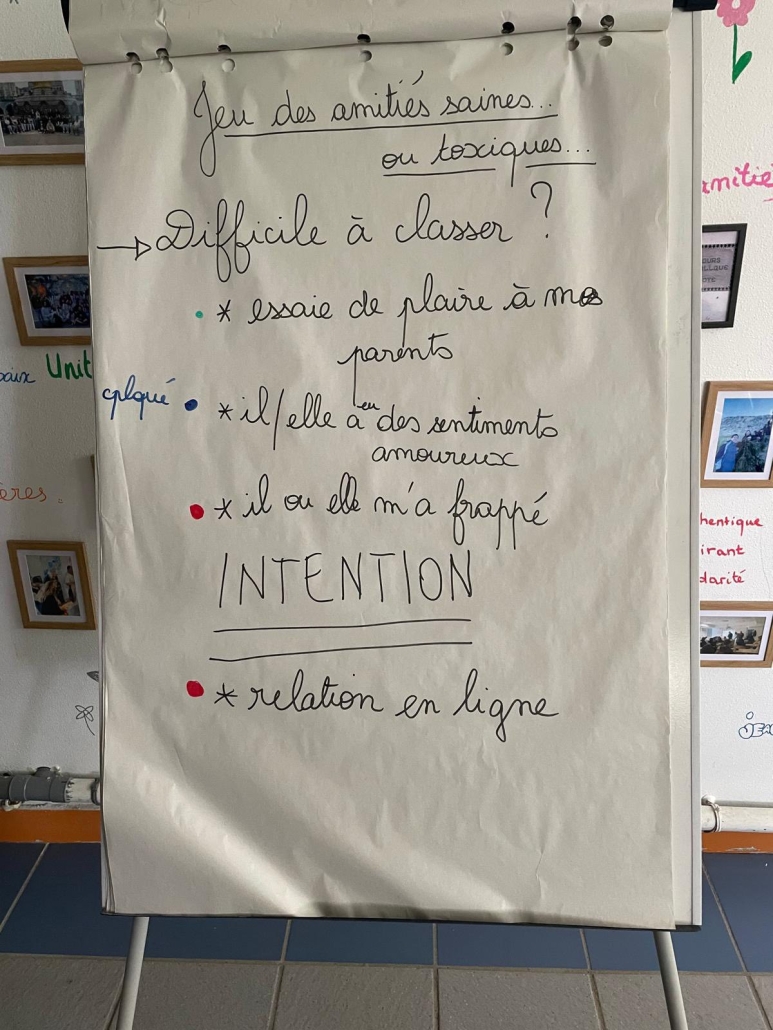 Jeu des amitiés saines...
ou toxiques...
→ Difficile à classer ?
* essaie de plaire à mes
parents
* il/elle a eu des sentiments
amoureux
* il ou elle m'a frappé
INTENTION
* relation en ligne
Unit
ères.
amitié
hentique
irant
darité